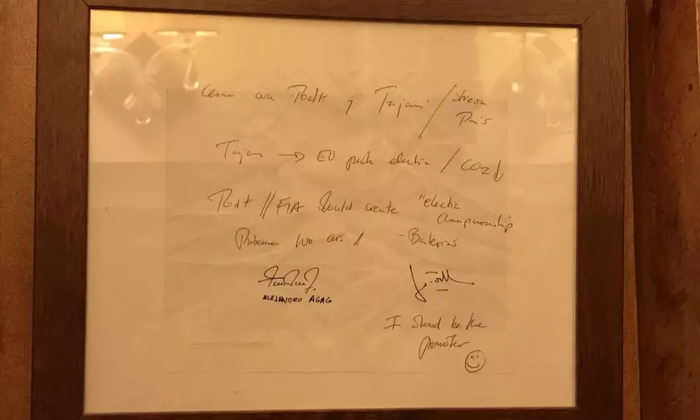 Cena con Todt y Tajani / Stresa
Paris
Tajani → EU push electric / CO2↓
Todt // FIA should create "electric
championship
Problema no cars! - Baterias
ALEJANDRO AGAG
I should be the
promoter ☺